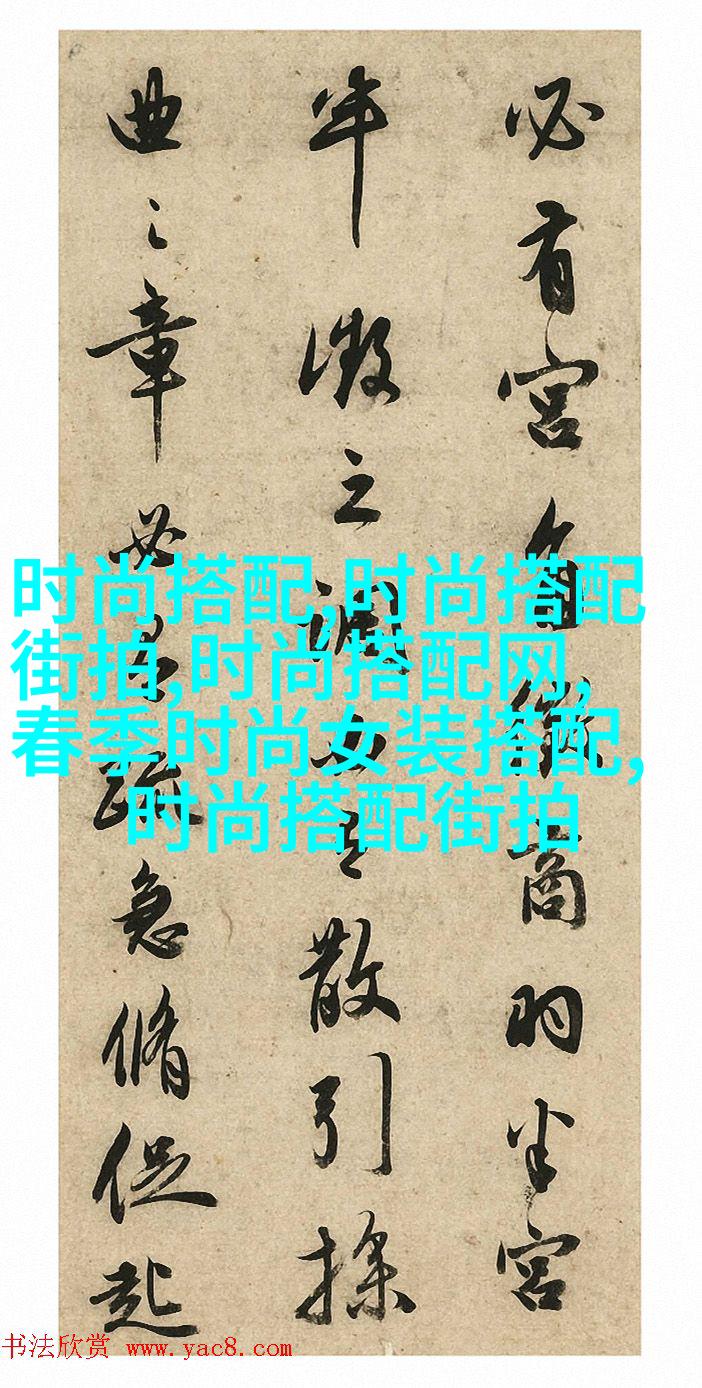 必有宮角徵商羽半宮
半徵之調必有散引操
曲之章必有疏急脩促起
时尚搭配,时尚搭配
街拍,时尚搭配网,
春季时尚女装搭配,
时尚搭配街拍
书法欣赏 www.yac8.com